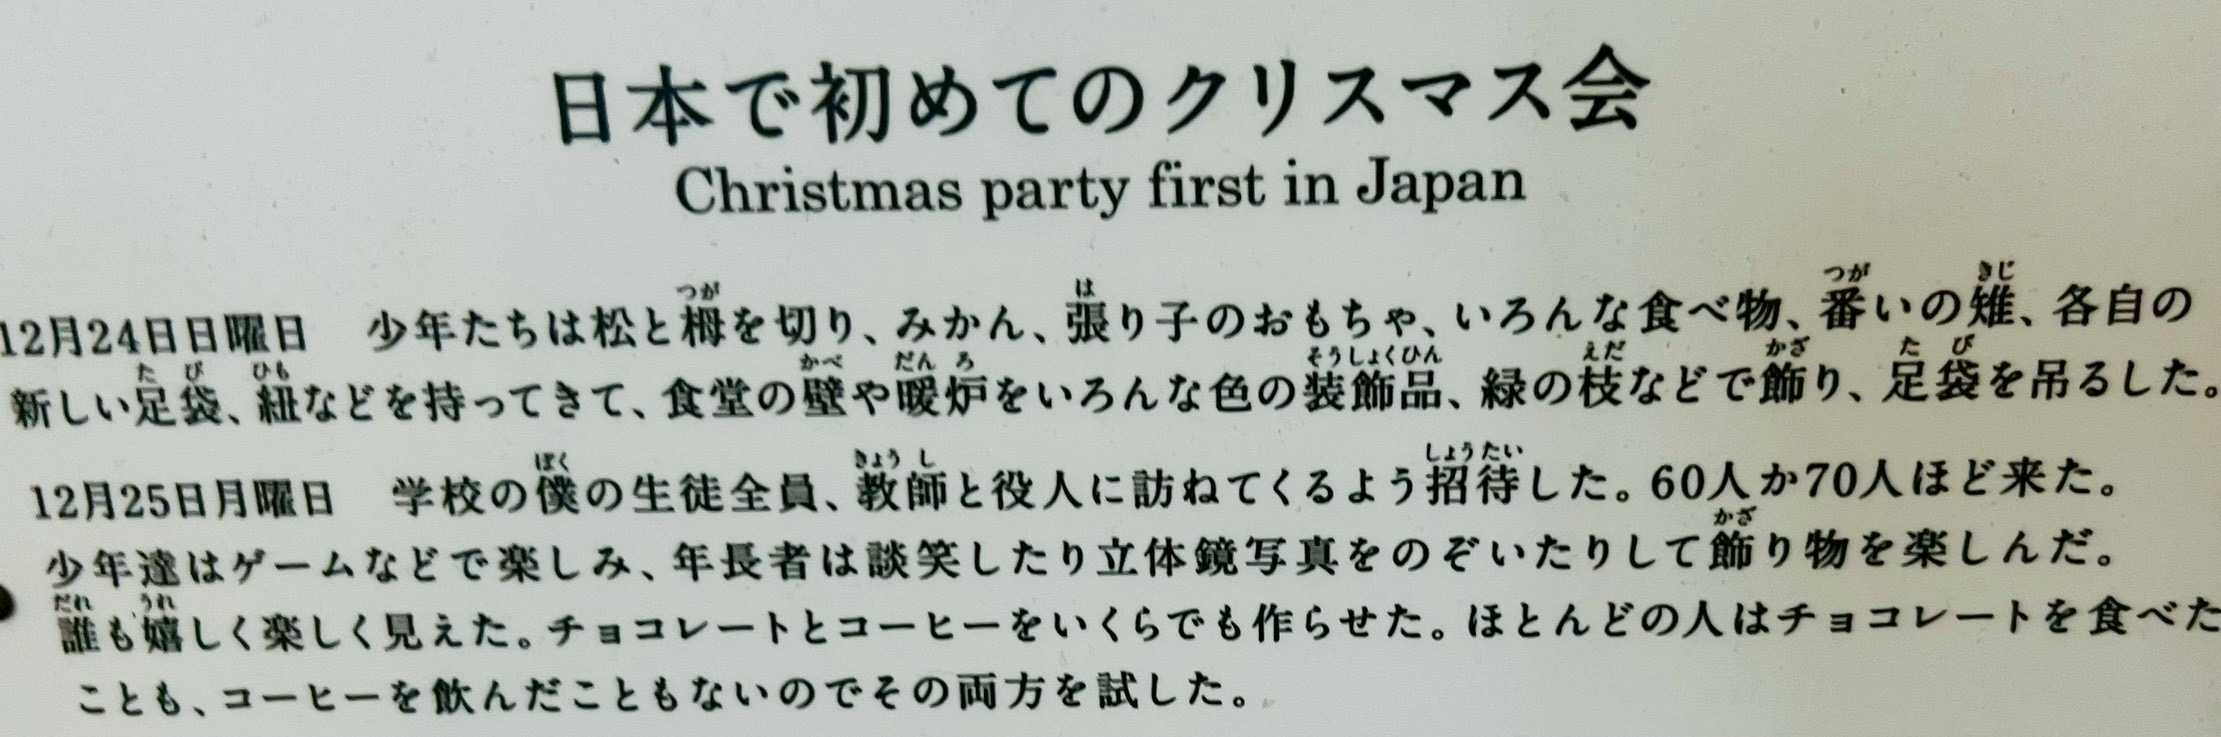 日本で初めてのクリスマス会
Christmas party first in Japan
つが は つが きじ
12月24日日曜日　少年たちは松と栂を切り、みかん、張り子のおもちゃ、いろんな食べ物、番いの雉、各自の
た び ひも かべ だん ろ そうしょくひん えだ かざ た び
新しい足袋、紐などを持ってきて、食堂の壁や暖炉をいろんな色の装飾品、緑の枝などで飾り、足袋を吊るした。
ぼく きょう し しょう たい
12月25日月曜日　学校の僕の生徒全員、教師と役人に訪ねてくるよう招待した。60人か70人ほど来た。
かざ
少年達はゲームなどで楽しみ、年長者は談笑したり立体鏡写真をのぞいたりして飾り物を楽しんだ。
だれ うれ
誰も嬉しく楽しく見えた。チョコレートとコーヒーをいくらでも作らせた。ほとんどの人はチョコレートを食べた
ことも、コーヒーを飲んだこともないのでその両方を試した。